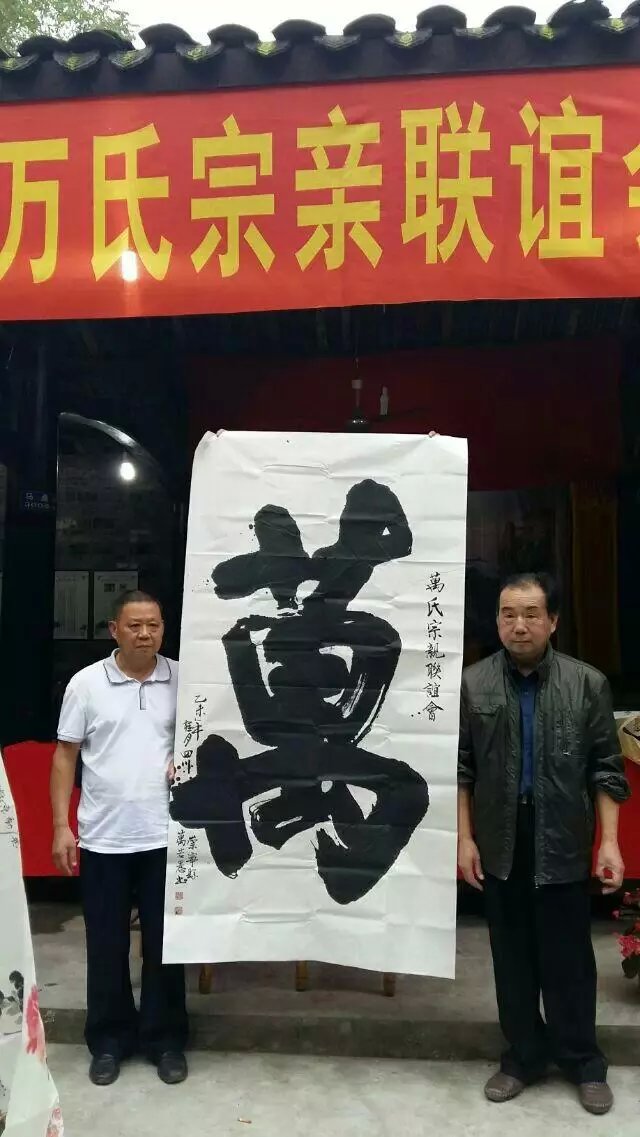 万氏宗亲联谊会
萬
萬氏宗親聯誼會
乙未年桂月四川
崇寧縣